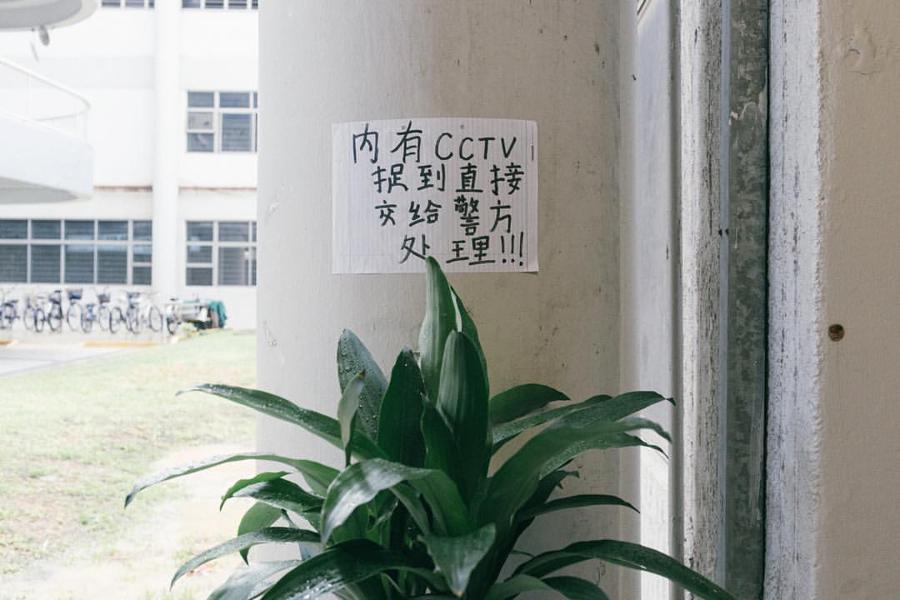 内有CCTV
捉到直接
交给警方
处理!!!